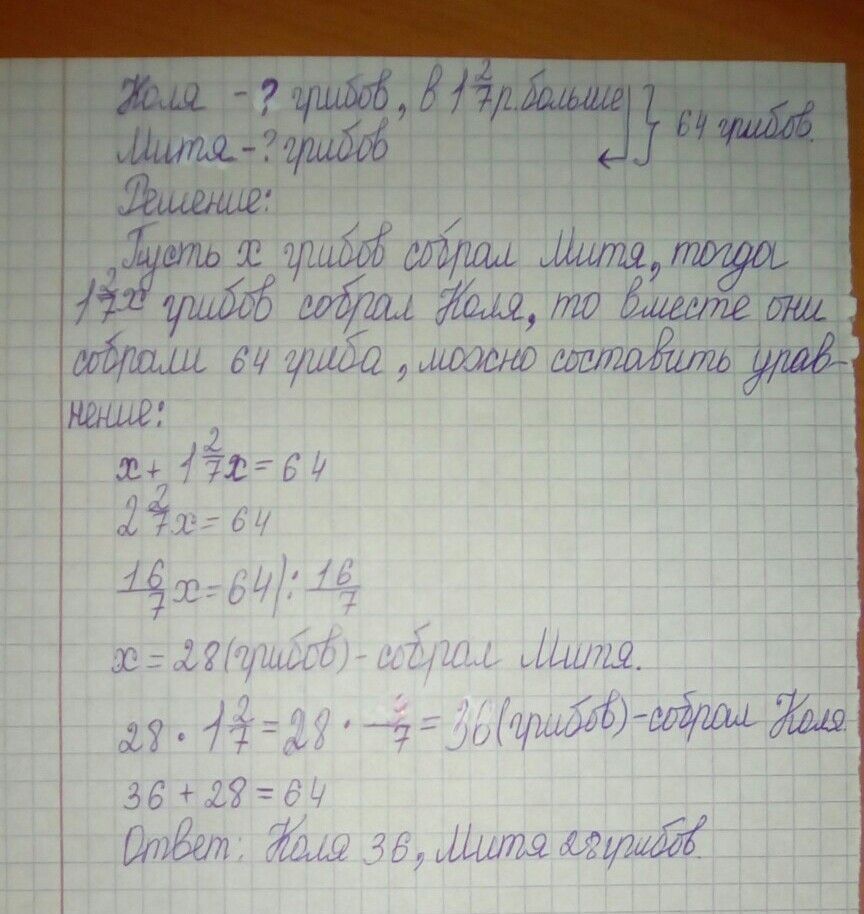 Коля - ? грибов, в 1 2/7 р. больше } 64 грибов.
Митя - ? грибов
Решение:
Пусть х грибов собрал Митя, тогда
1 2/7 х грибов собрал Коля, то вместе они
собрали 64 гриба, можно составить урав-
нение:
х + 1 2/7 х = 64
2 2/7 х = 64
16/7 х = 64 | : 16/7
х = 28 (грибов) - собрал Митя.
28 · 1 2/7 = 28 · /7 = 36 (грибов) - собрал Коля.
36 + 28 = 64
Ответ: Коля 36, Митя 28 грибов.